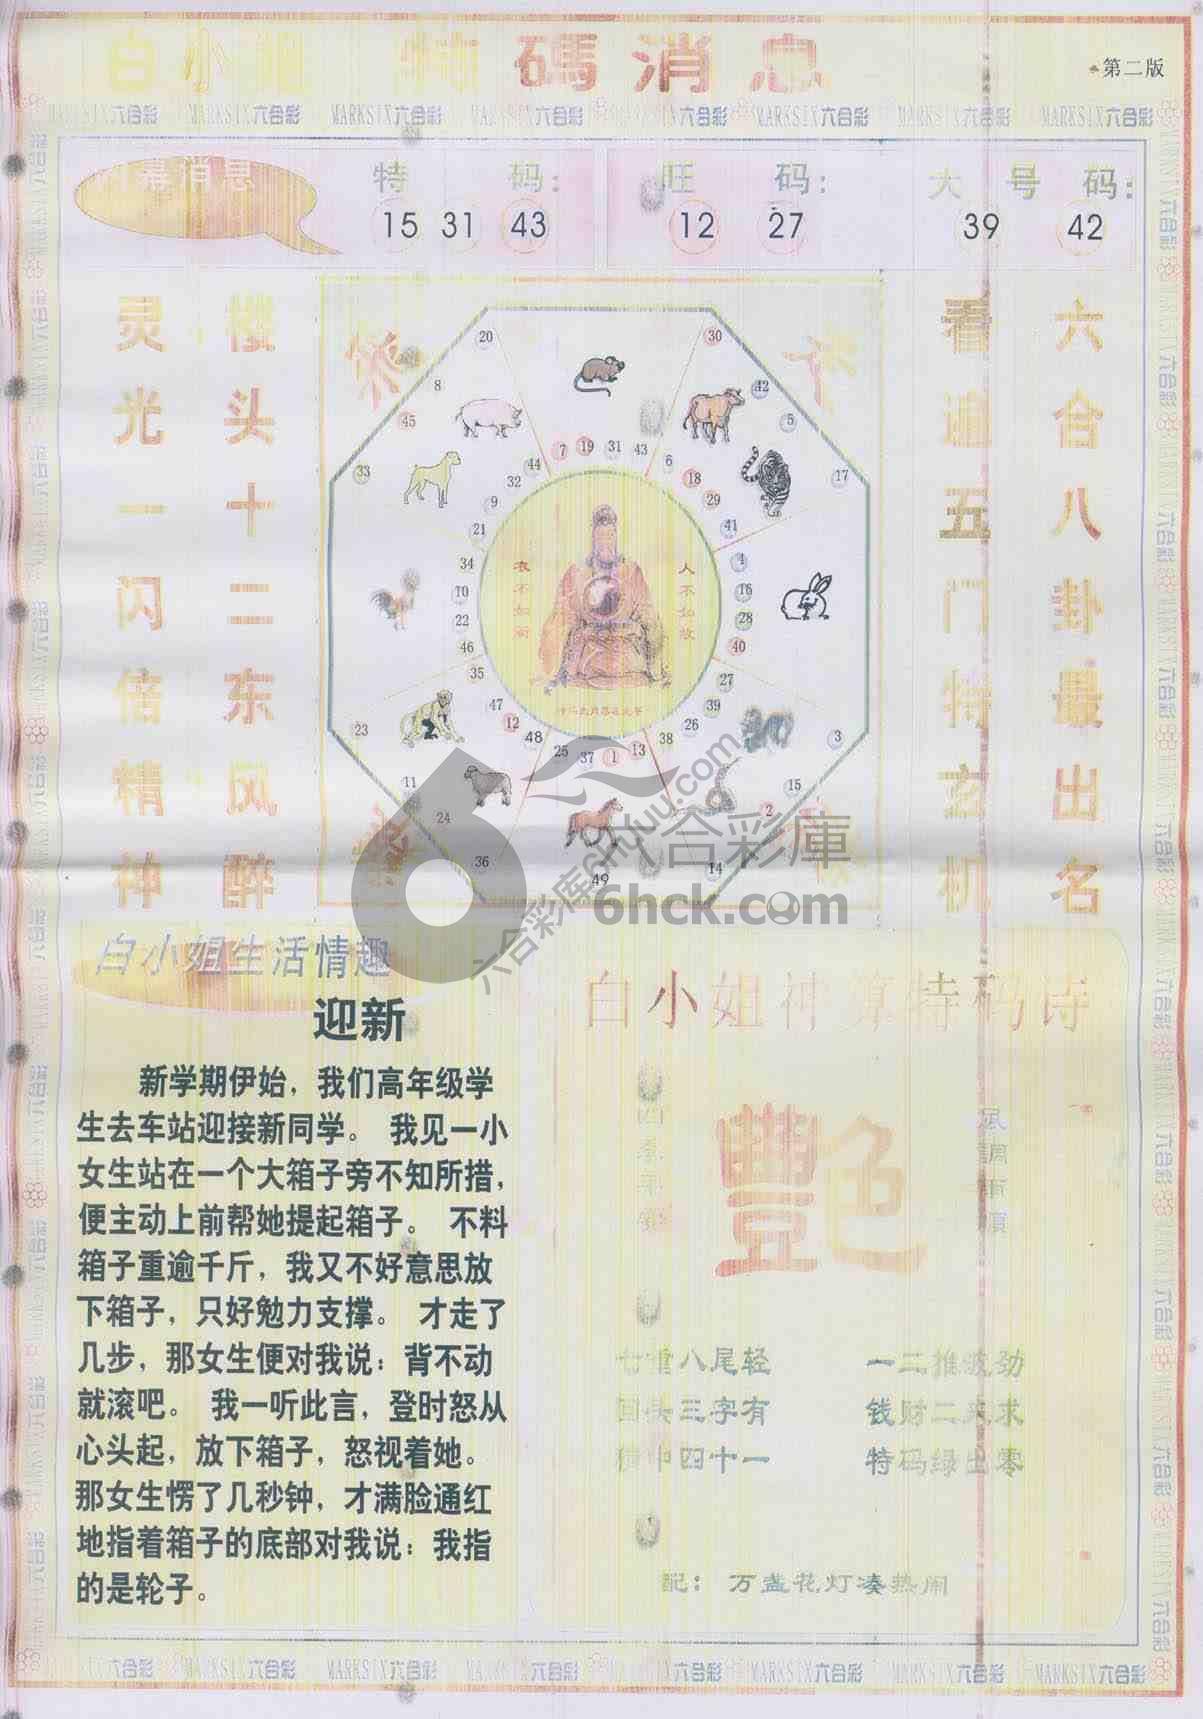 白小姐 特碼消息
第二版
MARKSIX六合彩 MARKSIX六合彩 MARKSIX六合彩 MARKSIX六合彩 MARKSIX六合彩 MARKSIX六合彩 MARKSIX六合彩 MARKSIX六合彩
内幕消息
特 码: 旺 码: 大 号 码:
15 31 43 12 27 39 42
六合八卦最出名
看遍五门特玄机
楼头十二东风醉
灵光一闪倍精神
20 30
8 42
45 5
33 17
7 19 31 43
44 6
32 18
9 29
21 41
34 4
10 16
22 28
46 40
35 27
47 39
12 26
48 38
25 37 1 13
23 3
11 15
24 2
36 14
49
衣不如新
人不如故
六合彩庫
6hck.com
六合彩库6hduu.com
白小姐生活情趣
迎新
新学期伊始，我们高年级学
生去车站迎接新同学。 我见一小
女生站在一个大箱子旁不知所措，
便主动上前帮她提起箱子。 不料
箱子重逾千斤，我又不好意思放
下箱子，只好勉力支撑。 才走了
几步，那女生便对我说：背不动
就滚吧。 我一听此言，登时怒从
心头起，放下箱子，怒视着她。
那女生愣了几秒钟，才满脸通红
地指着箱子的底部对我说：我指
的是轮子。
白小姐神算特码诗
風調雨順
豔
七重八尾轻 一二推波劲
回头三字有 钱财二来求
中四十一 特码绿出零
配：万盏花灯凑热闹
MARKSIX六合彩 MARKSIX六合彩 MARKSIX六合彩 MARKSIX六合彩 MARKSIX六合彩 MARKSIX六合彩 MARKSIX六合彩 MARKSIX六合彩